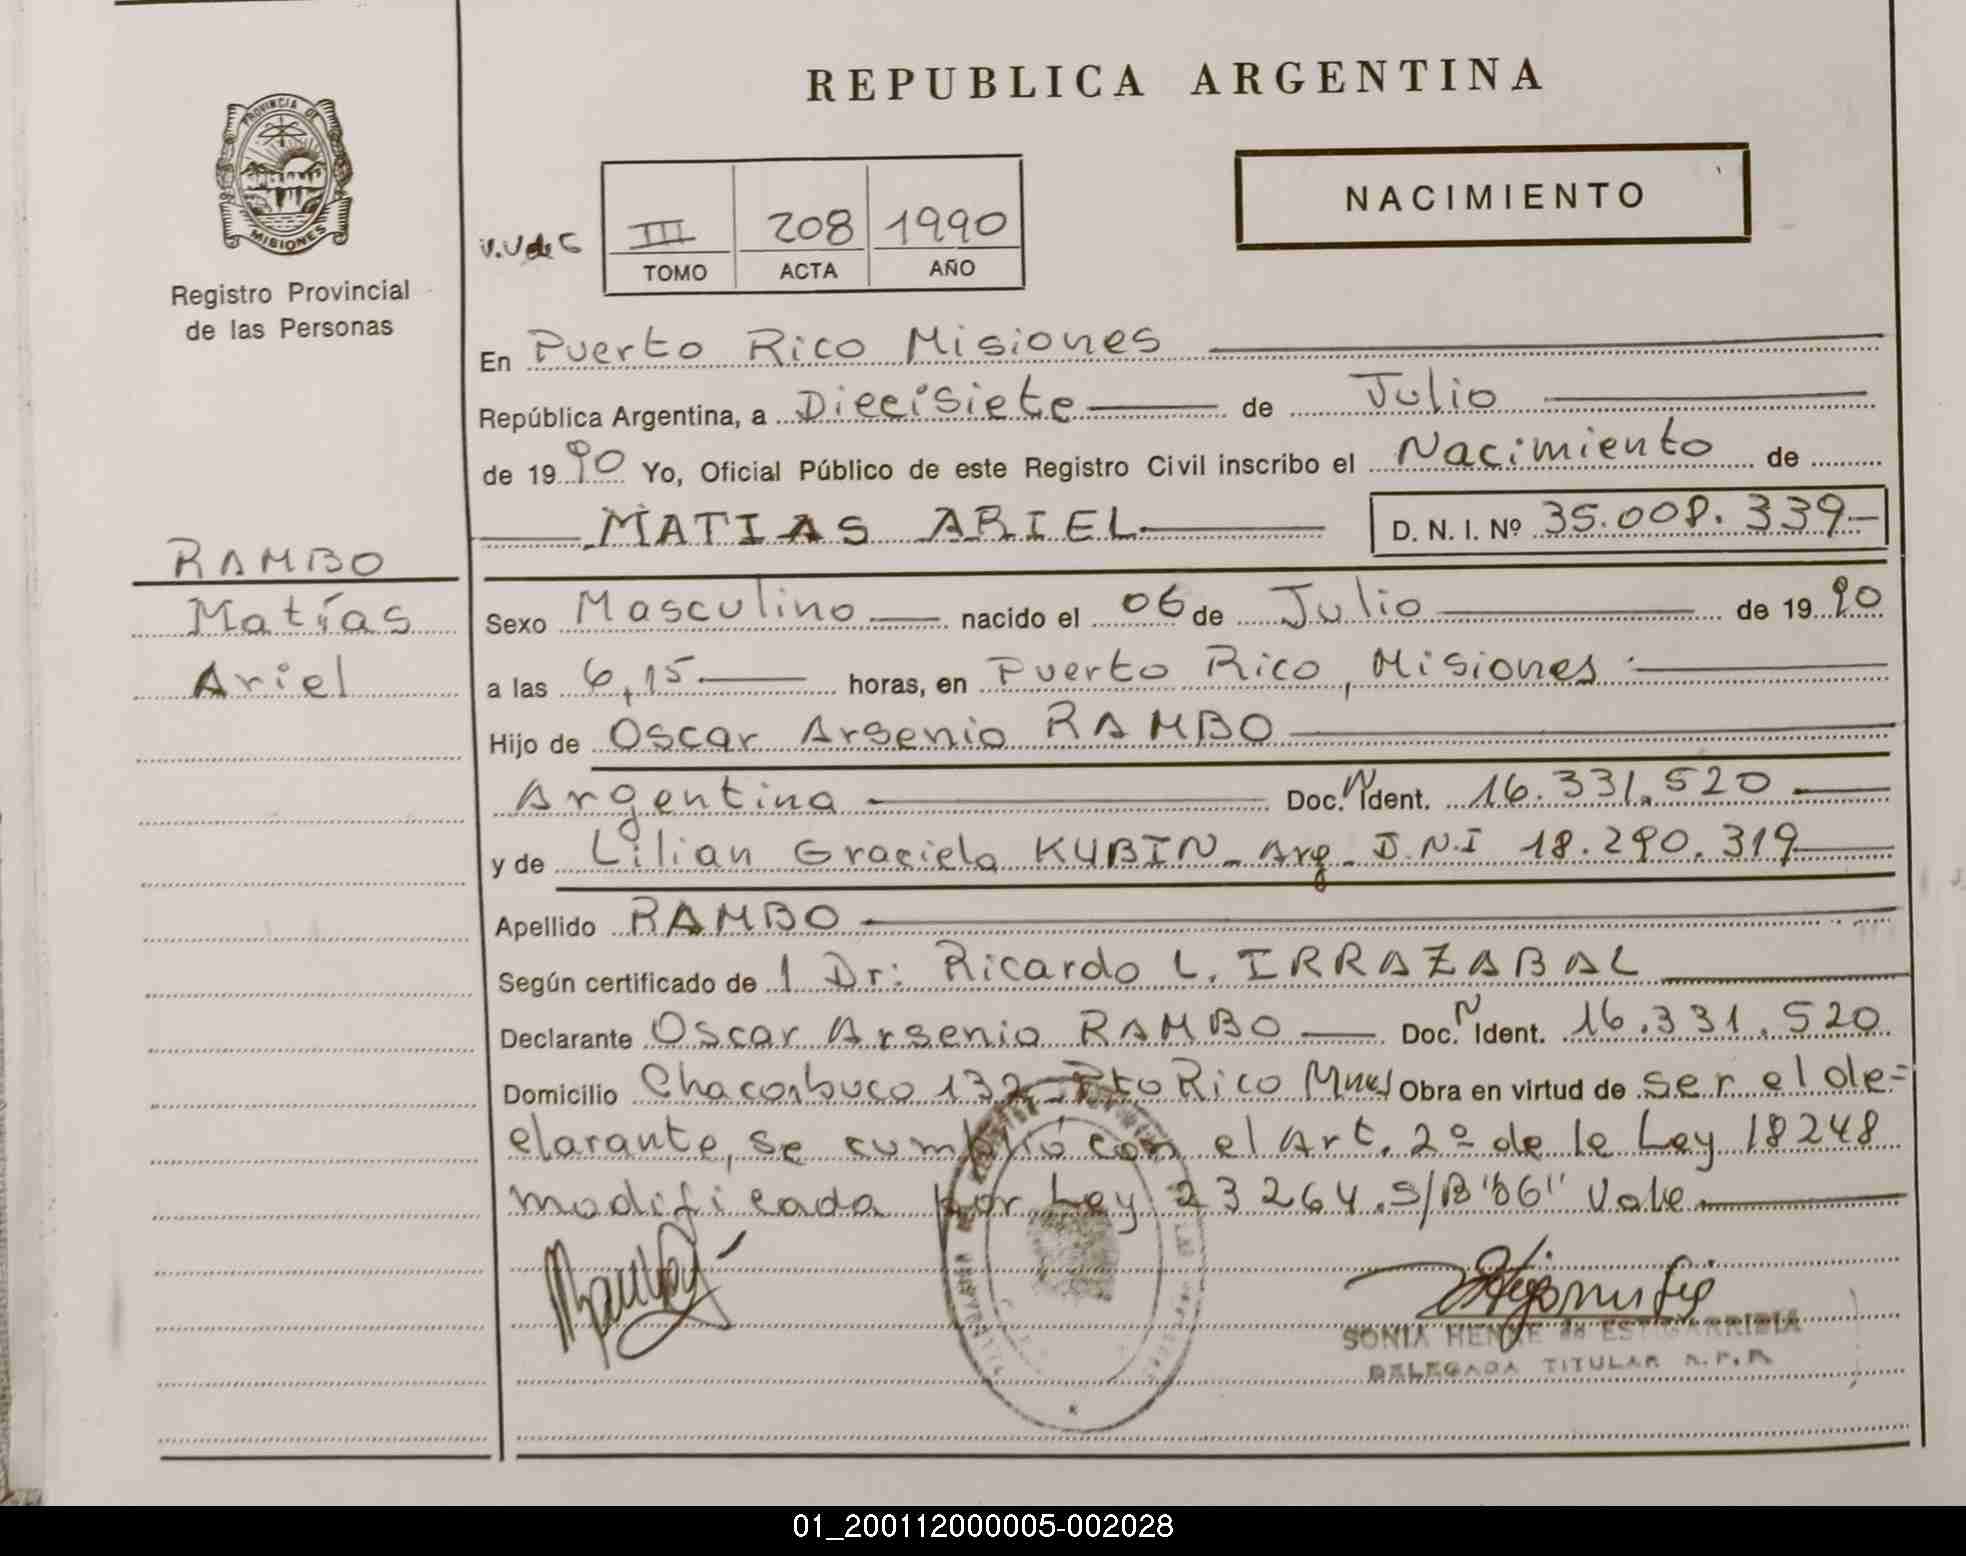 REPUBLICA ARGENTINA
PROVINCIA DE MISIONES
Registro Provincial
de las Personas
NACIMIENTO
III 208 1990
TOMO ACTA AÑO
En Puerto Rico Misiones
República Argentina, a Diecisiete de Julio
de 1990 Yo, Oficial Público de este Registro Civil inscribo el Nacimiento de
MATIAS ARIEL D. N. I. Nº 35.008.339
RAMBO
Matías
Ariel
Sexo Masculino nacido el 06 de Julio de 1990
a las 6,15 horas, en Puerto Rico, Misiones
Hijo de Oscar Arsenio RAMBO
Argentina Doc. N Ident. 16.331.520
y de Lilian Graciela KUBIN - Arg - D.N.I 18.290.319
Apellido RAMBO
Según certificado de 1 Dr: Ricardo L. IRRAZABAL
Declarante Oscar Arsenio RAMBO Doc. N Ident. 16.331.520
Domicilio Chacabuco 132 Pto Rico Mnes Obra en virtud de ser el de=
clarante, se cumplió con el Art. 2º de le Ley 18248
modificada por Ley 23264. S/B "06" Vale
SONIA HENNE de ESTIGARRIBIA
DELEGADA TITULAR R.P.P.
01_200112000005-002028